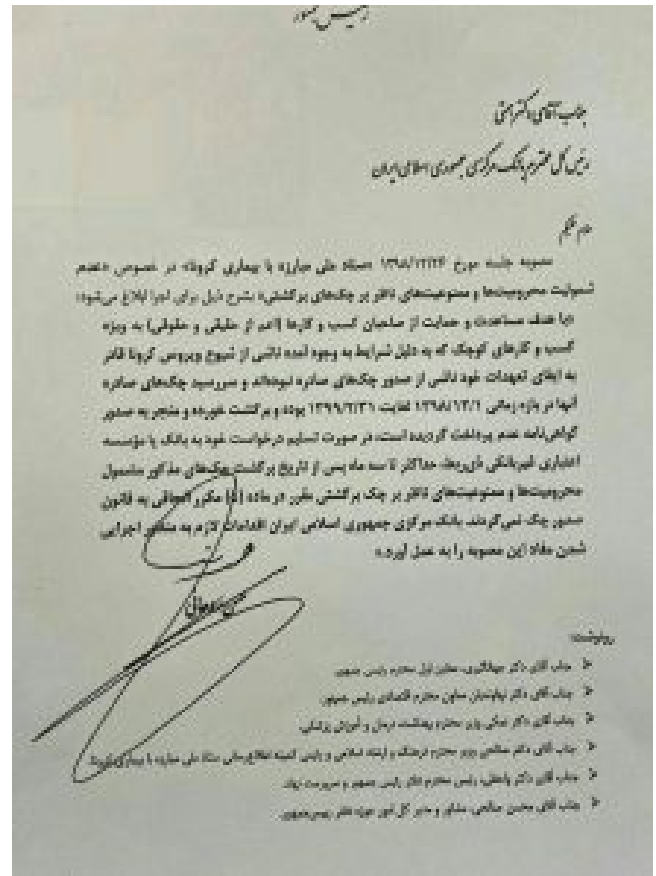 رئیس جمهور
جناب آقای دکتر همتی
رئیس کل محترم بانک مرکزی جمهوری اسلامی ایران
سلام علیکم
مصوبه جلسه مورخ ۱۳۹۸/۱۲/۲۴ «ستاد ملی مبارزه با بیماری کرونا» در خصوص «عدم
شمولیت محرومیت‌ها و ممنوعیت‌های ناظر بر چک‌های برگشتی» بشرح ذیل برای اجرا ابلاغ می‌شود:
«با هدف مساعدت و حمایت از صاحبان کسب و کارها (اعم از حقیقی و حقوقی) به ویژه
کسب و کارهای کوچک که به دلیل شرایط به وجود آمده ناشی از شیوع ویروس کرونا قادر
به ایفای تعهدات خود ناشی از صدور چک‌های صادره نبوده‌اند و سررسید چک‌های صادره
آنها در بازه زمانی ۱۳۹۸/۱۲/۱ لغایت ۱۳۹۹/۲/۳۱ بوده و برگشت خورده و منجر به صدور
گواهی‌نامه عدم پرداخت گردیده است، در صورت تسلیم درخواست خود به بانک یا مؤسسه
اعتباری غیربانکی ذی‌ربط، حداکثر تا سه ماه پس از تاریخ برگشت چک‌های مذکور مشمول
محرومیت‌ها و ممنوعیت‌های ناظر بر چک برگشتی مقرر در ماده (۵) مکرر الحاقی به قانون
صدور چک نمی‌گردند. بانک مرکزی جمهوری اسلامی ایران اقدامات لازم به منظور اجرایی
شدن مفاد این مصوبه را به عمل آورد.»
حسن روحانی
رونوشت:
جناب آقای دکتر جهانگیری، معاون اول محترم رئیس جمهور
جناب آقای دکتر نهاوندیان معاون محترم اقتصادی رئیس جمهور
جناب آقای دکتر نمکی وزیر محترم بهداشت، درمان و آموزش پزشکی
جناب آقای دکتر صالحی وزیر محترم فرهنگ و ارشاد اسلامی و رئیس کمیته اطلاع‌رسانی ستاد ملی مبارزه با بیماری کرونا
جناب آقای دکتر واعظی، رئیس محترم دفتر رئیس جمهور و سرپرست نهاد
جناب آقای محسن صالحی، مشاور و مدیر کل امور حوزه دفتر رییس‌جمهور